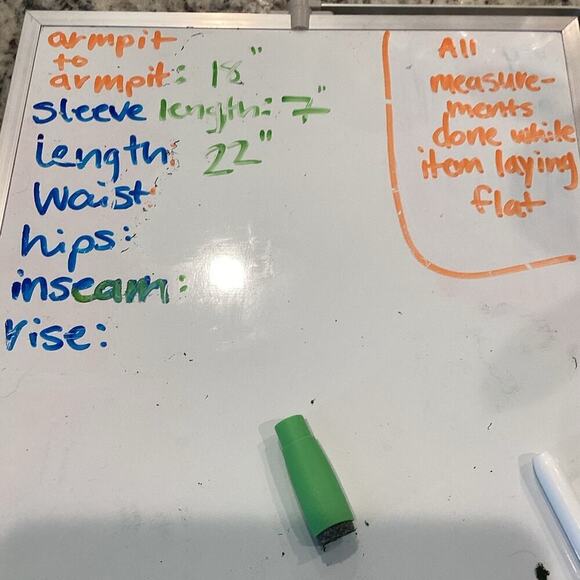 armpit
to
armpit: 18"
sleeve length: 7"
length: 22"
Waist:
hips:
inseam:
rise:
All
measure-
ments
done while
item laying
flat